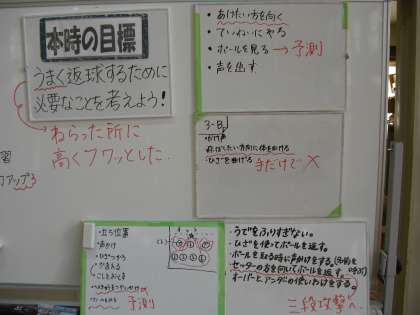 本時の目標
うまく返球するために
必要なことを考えよう!
ねらった所に
高くフワッとした
習
アップ
・あげたい方を向く
・ていねいにやる
・ボールを見る→予測
・声を出す
3-B
・かけ声
・飛ばしたい方向に体を向ける
・ひざを曲げる 手だけで×
・立ち位置
・声かけ
・ひざをつかう
・かまえる
予測
・うでをふりすぎない。
・ひざを使ってボールを返す。
・ボールを取る時に声かけをする。
・セッターの方を向いてボールを返す。
・オーバーとアンダーの使いわけをする。
三段攻撃へ